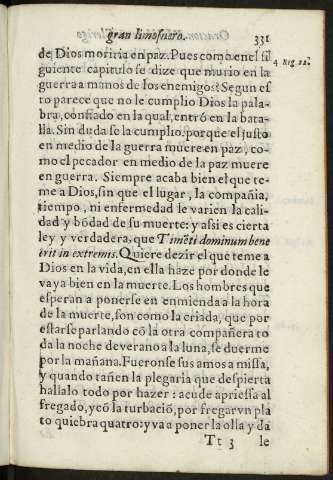 gran limoſnero. 331
de Dios moriria en paz. Pues como en el ſi
guiente capitulo ſe dize que murio en la
guerra a manos de los enemigos? Segun eſ
to parece que no le cumplio Dios la pala-
bra, confiado en la qual, entrò en la bata-
lla. Sin duda ſe la cumplio, porque el juſto
en medio de la guerra muere en paz, co-
mo el pecador en medio de la paz muere
en guerra. Siempre acaba bien el que te-
me a Dios, ſin que el lugar, la compañia,
tiempo, ni enfermedad le varien la cali-
dad y bõdad de ſu muerte: y aſsi es cierta
ley y verdadera, que Timẽti dominum bene
erit in extremis. Quiere dezir el que teme a
Dios en la vida, en ella haze por donde le
vaya bien en la muerte. Los hombres que
eſperan a ponerſe en enmienda a la hora
de la muerte, ſon como la criada, que por
eſtarſe parlando cõ la otra compañera to
da la noche deverano a la luna, ſe duerme
por la mañana. Fueronſe ſus amos a miſſa,
y quando tañen la plegaria que deſpierta
hallalo todo por hazer: acude aprieſſa al
fregado, y cõ la turbaciõ, por fregar vn pla
to quiebra quatro: y va a poner la olla y da
Tt 3 le
4 Reg. 22.